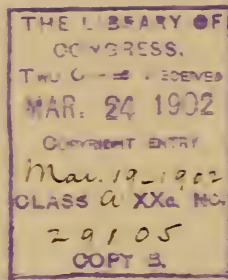 THE LIBRARY OF
CONGRESS,
TWO RECEIVED
MAR. 24 1902
COPYRIGHT ENTRY
Mar. 19-1902
CLASS a XXc. NO.
29105
COPY B.